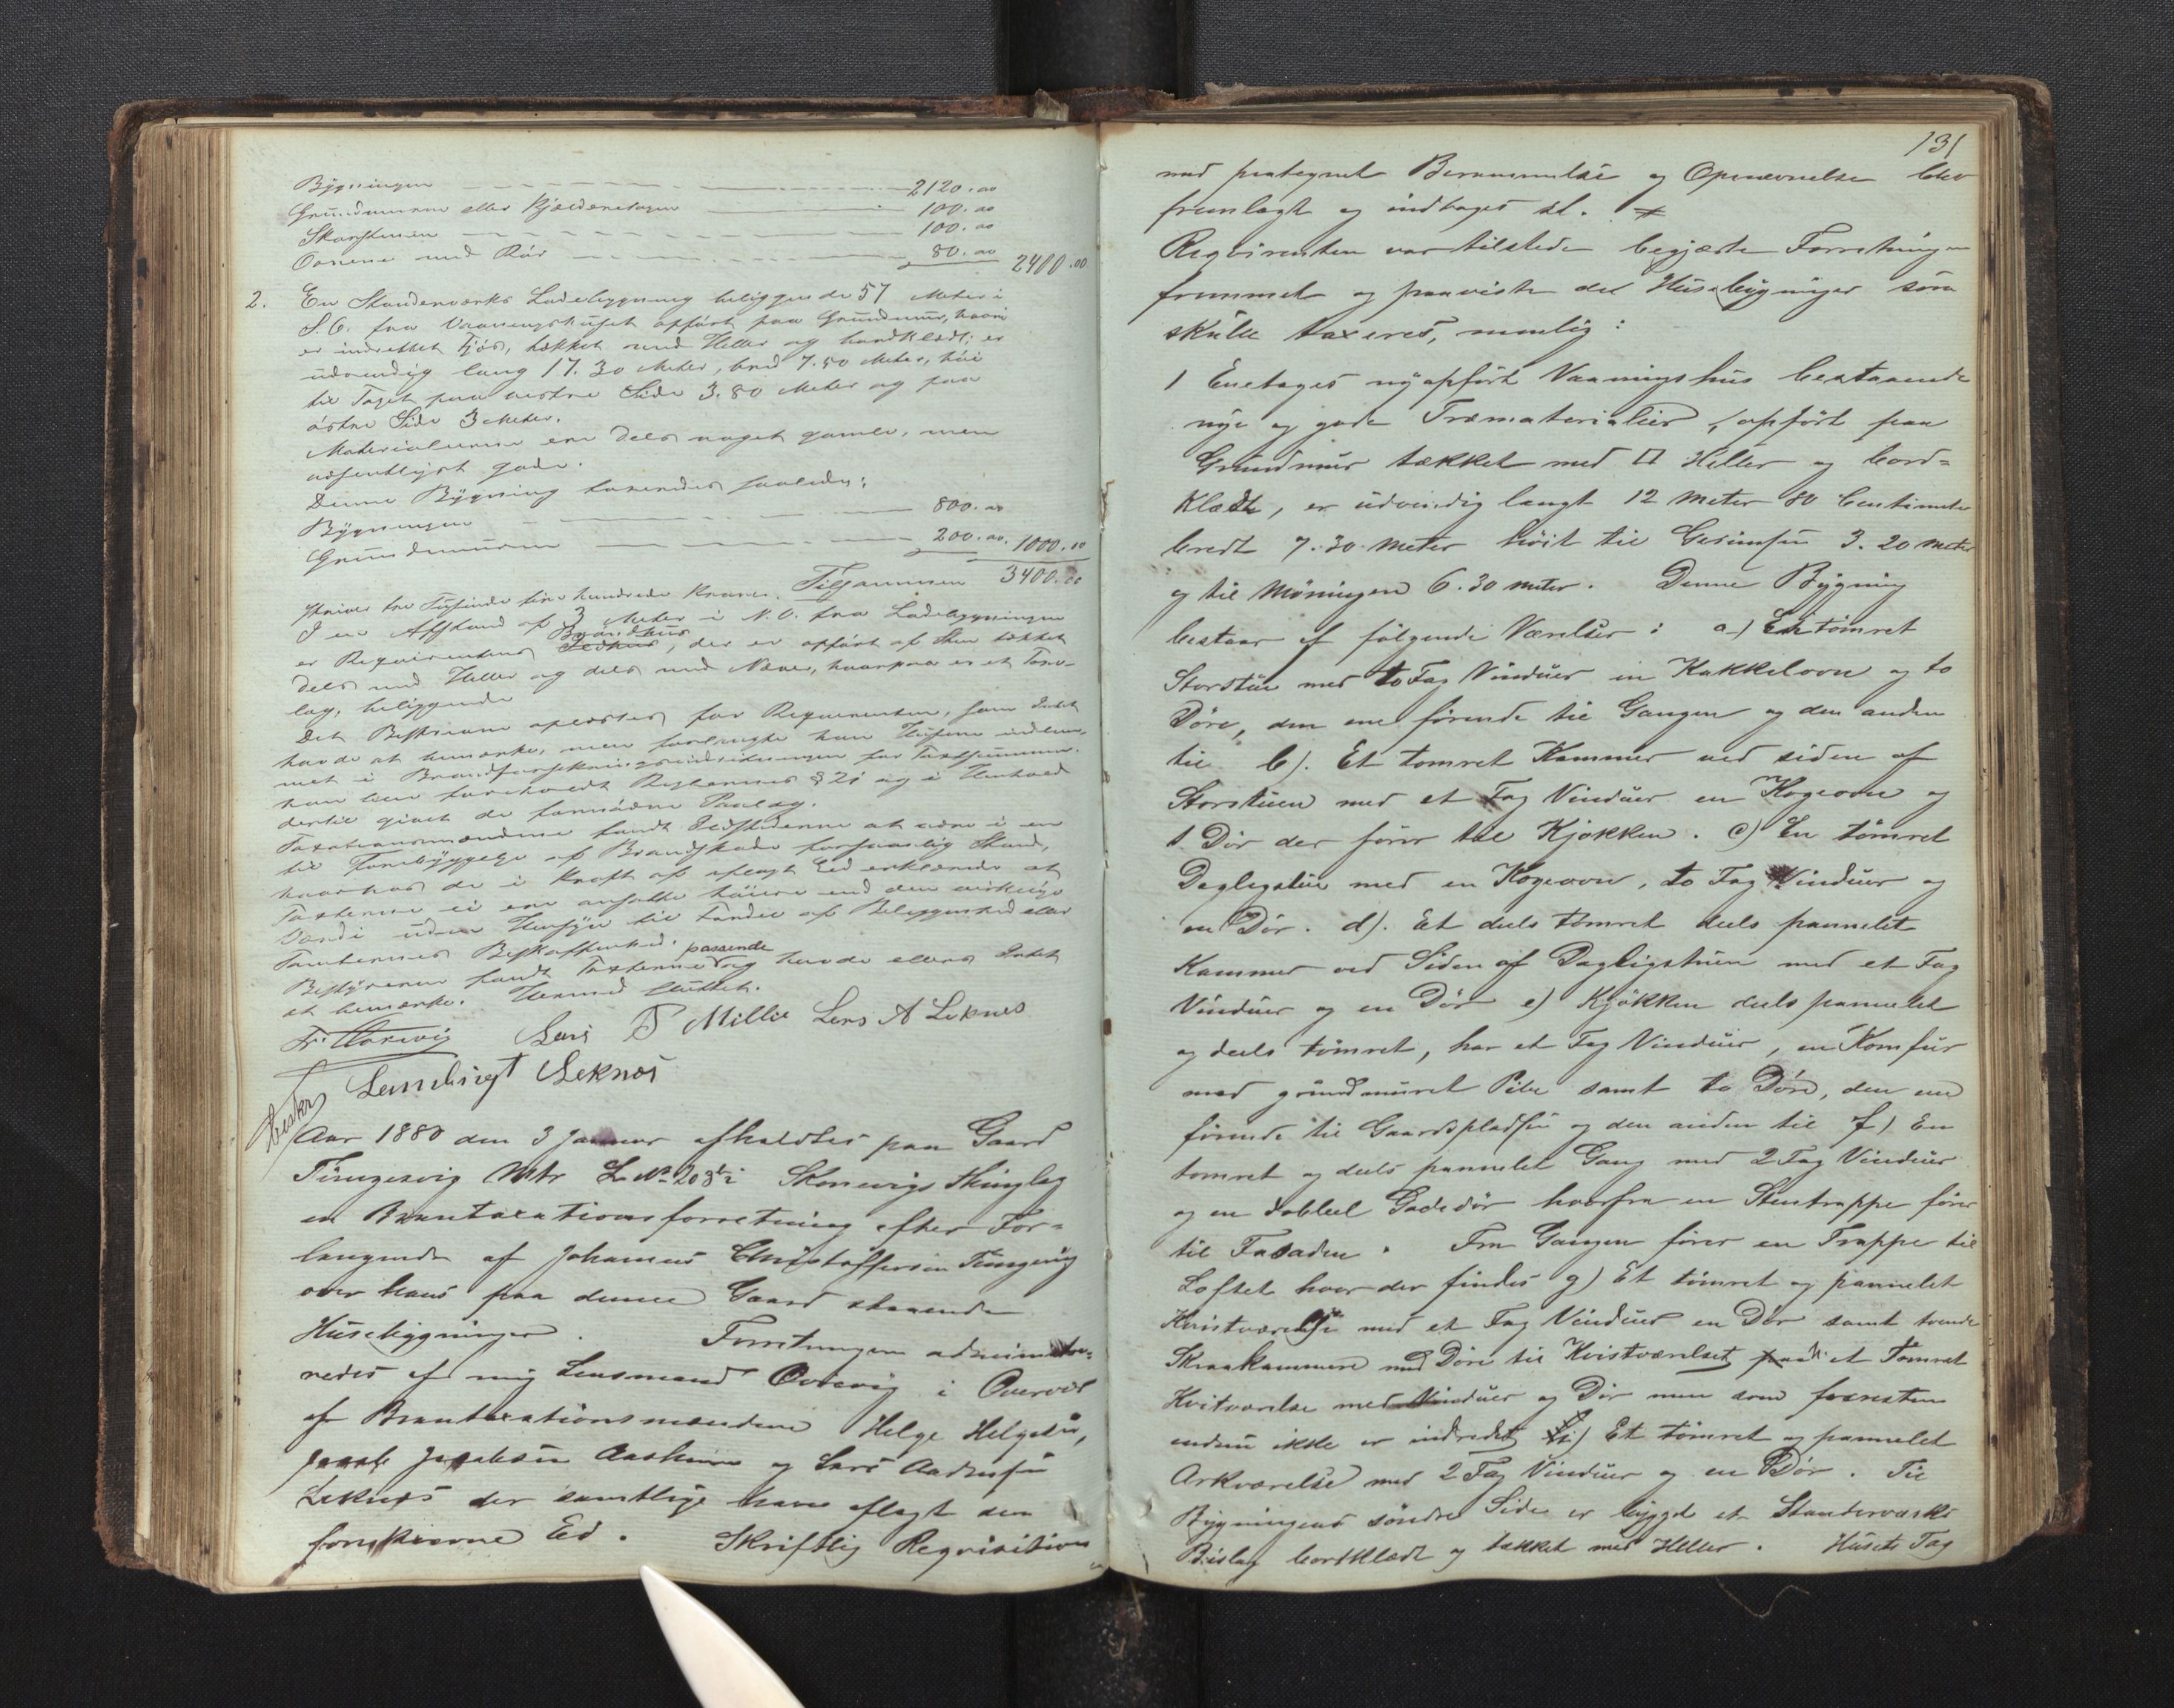 Bygningen 2120.00
Grundmuren eller Kjælderetagen 100.00
Skorstenen 100.00
Ovnene med Rör 80.00 2400.00
2. En Standerværks Ladebygning beliggende 57 Meter i
S.O. fra Vaaningshuset opført paa Grundmur, hvori
er indrettet Fjøs, tækket med Heller og bordklædt; er
udvendig lang 17.30 Meter, bred 7.50 Meter, høi
til Taget paa vestre Side 3.80 Meter og paa
østre Side 3 Meter.
Materialierne ere dels noget gamle, men
væsentligst gode.
Denne Bygning taxeredes saaledes:
Bygningen 800.00
Grundmuren 200.00 1000.00
Tilsammen 3400.00
skriver tre Tusinde fire hundrede Kroner.
I en Afstand af 3 Meter i N.O. fra Ladebygningen
er Requirentens Brandhus, der er opført af Sten tækket
dels med Heller og dels med Næver, hvorpaa er et Torv-
lag, beliggende
Det Beskrevne oplæstes for Requirenten, som Intet
havde at bemærke, men forlangte han Husene indlem-
met i Brandforsikringsindretningen for Taxtsummen.
han blev foreholdt Reglernes § 21 og i Henhold
dertil givet de fornødne Paalæg.
Taxationsmændene fandt Ildstederne at være i en
til Forebyggelse af Brandskade forsvarlig Stand,
hvorhos de i Kraft af aflagt Ed erklærede at
Taxterne ei ere ansatte høiere end den virkelige
Værdi uden Hensyn til Fordel af Beliggenhed eller
Tomternes Beskaffenhed.
Bestyreren fandt Taxterne passende og havde ellers Intet
at bemærke. Hermed sluttet.
Lars T Millie Lars A Leknes
Leknes
Aar 1880 den 3 Januar afholdtes paa Gaard
Tungesvig Mtr L No 208 i Skonevigs Thinglag
en Branntaxationsforretning efter For-
langende af Johannes Christoffersen Tungesvig
over hans paa denne Gaard staaende
Husebygninger. Forretningen administre-
redes af mig Lensmand Qvævig i Overvær
af Branntaxationsmændene Helge Helgesen,
Jacob Jacobsen Aasheim og Lars Andersen
Leknes der samtlige have aflagt den
forskrevne Ed. Skriftlig Reqvisition
131
med paategnet Berammelse og Opnævnelse blev
fremlagt og indtages sl. #
Reqvirenten var tilstede begjærte Forretningen
fremmet og paaviste det Husebygninger som
skulle taxeres, nemlig:
1 Enetages nyopført Vaaningshus bestaaende
nye og gode Træmaterialier, opført paa
Grundmur tækket med □ Heller og bord=
klædt, er udvendig langt 12 Meter 80 Centimeter
bredt 7.30 Meter høit til Gesimsen 3.20 Meter
og til Møningen 6.30 Meter. Denne Bygning
bestaar af følgende Værelser: a) En tømret
Storstue med to Fag Vinduer en Kakkelovn og to
Døre, den ene førende til Gangen og den anden
til b). Et tømret Kammer ved siden af
Storstuen med et Fag Vinduer en Kogeovn og
1 Dør der fører til Kjøkken. c) En tømret
Dagligstue med en Kogeovn, to Fag Vinduer og
en Dør. d). Et deels tømret deels pannelet
Kammer ved Siden af Dagligstuen med et Fag
Vinduer og en Dør e) Kjøkken deels pannelet
og deels tømret, har et Fag Vinduer, en Komfur
med grundmuret Pibe samt to Døre, den ene
førende til Gaardspladsen og den anden til f) En
tømret og deels pannelet Gang med 2 Fag Vinduer
og en dobbel Gadedør hvorfra en Stentrappe fører
til Facaden. Fra Gangen fører en Trappe til
Loftet hvor der findes g) Et tømret og pannelet
Kvistværelse med et Fag Vinduer en Dør samt tvende
Skraakammere med Døre til Kvistværelset h) et Tømret
Kvitværelse med Vinduer og Dør men som foresten
endnu ikke er indredet i) Et tømret og pannelet
Arkværelse med 2 Fag Vinduer og en Dør. Til
Bygningens søndre Side er bygget et Standerværks
Bislag bordklædt og tækket med Heller. Husets Tag